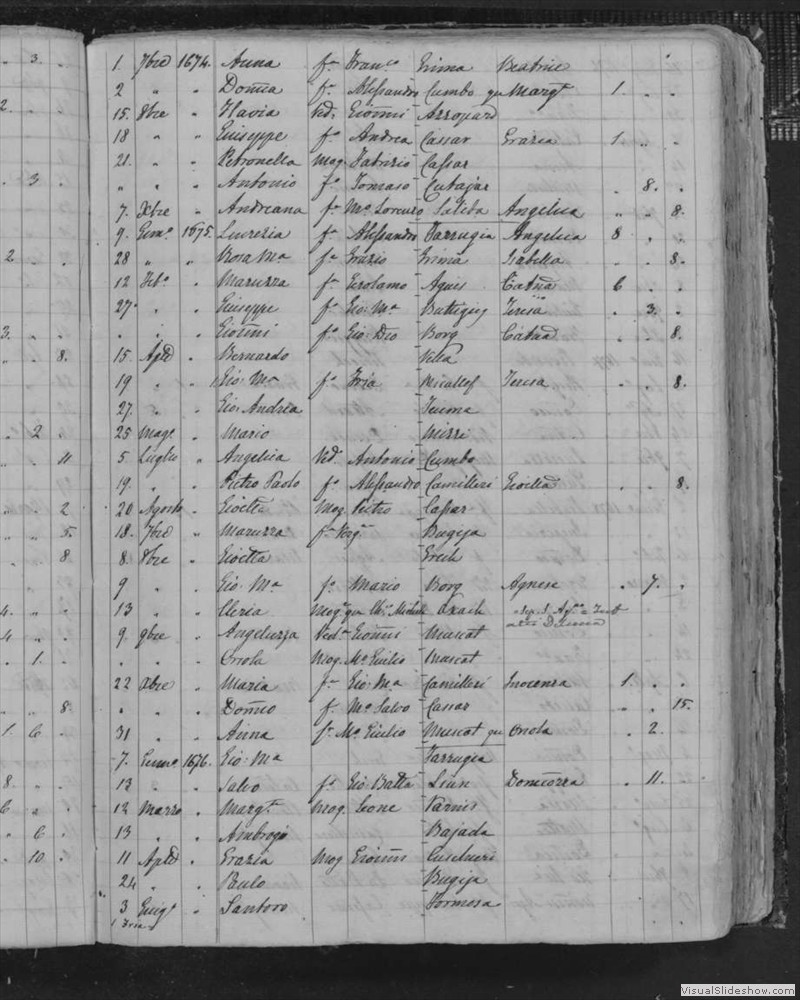 3.
1. 7bre 1674. Anna fa Franco Grima Beatrice
2 " " Domca fa Alessandro Cumbo qu Margt 1. . .
2.
15. 8bre " Flavia Ved. Gionni
18 " " Giuseppe fo Andrea Cassar Grazia 1. " .
21. " . Petronella Mog. Fabrizio Cassar
3 " " . Antonio fo Tomaso Cutajar . 8. .
7. Xbre " Andreana fa Mo Lorenzo Saliba Angelica " " 8.
9. Genno 1675. Lucrezia fa Alessandro Farrugia Angelica 8 . .
2 28 " " Rosa Ma fa Grazio Grima Isabella . . 8.
12 Febo . Maruzza fa Girolamo Agius Catna 6 . .
27. " . Giuseppe fo Gio: Ma Buttigieg Teresa . 3. .
3. " " . Gionni fo Gio: Dio Borg Catna . . 8.
8. 15. Aple . Bernardo Vella
19 " . Gio: Ma fo Micallef Teresa . . 8.
27. " . Gio: Andrea
2 25 Mage . Mario Mizzi
11 5 Luglio " Angelica Ved. Antonio Cumbo
19. " . Pietro Paolo fo Alessandro Camilleri Gioella . . 8.
2 20 Agosto . Gioella Mog. Pietro Cassar
5. 18. 7bre " Maruzza fa Bugeja
8 8. 8bre " Gioella Grech
9 " " Gio: Ma fo Mario Borg Agnese . 7. .
4. 13 " . Cleria Axach
4 9. 9bre " Angeluzza Veda Gionni Muscat
1. " . . Oriola Mog. Mo Giulio Muscat
22 Xbre " Maria fa Gio: Ma Camilleri Inocenza 1. . .
8. " " . Domco fo Mo Salvo Cassar . . 15.
1. 6 31 " . Anna fa Mo Giulio Muscat qu Oriola . 2. .
7. Genno 1676. Gio: Ma Farrugia
8. 13 " . Salvo fo Gio: Batta 11.
6 12 Marzo . Margt. Mog. Leone
6 13 " . Ambrogio Bajada
10 11 Aple . Grazia Mog Gionni
24 " . Paulo Bugeja
3 Giugo . Santoro Formosa
VisualSlideshow.com